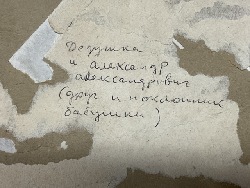 Дедушка
и александр
александрович
(друг и поклонник
бабушки)